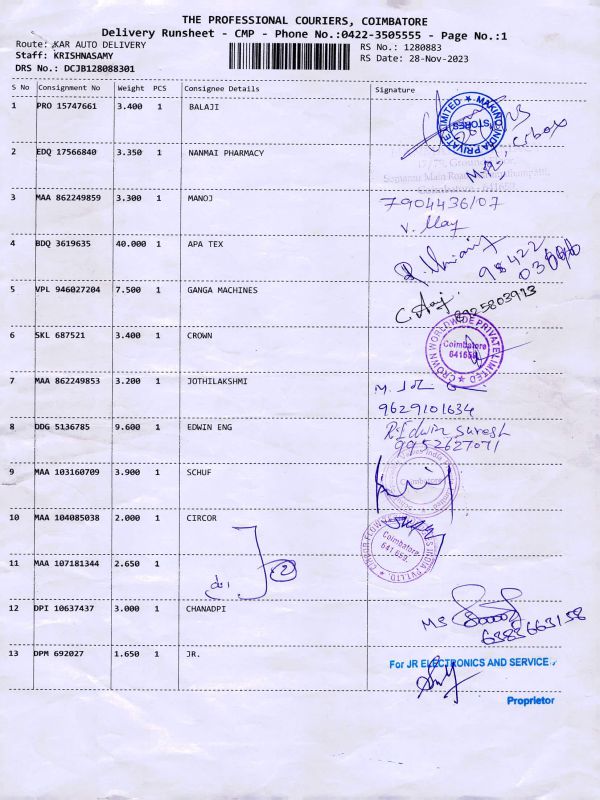 THE PROFESSIONAL COURIERS, COIMBATORE
Delivery Runsheet - CMP - Phone No.:0422-3505555 - Page No.:1
Route: KAR AUTO DELIVERY
RS No.: 1280883
Staff: KRISHNASAMY
RS Date: 28-Nov-2023
DRS No.: DCJB128088301
S No Consignment No Weight PCS Consignee Details Signature
1 PRO 15747661 3.400 1 BALAJI
MAKINO INDIA PRIVATE LIMITED ★ STORES
2 EDQ 17566840 3.350 1 NANMAI PHARMACY
3 MAA 862249859 3.300 1 MANOJ
7904436107
4 BDQ 3619635 40.000 1 APA TEX
98422
5 VPL 946027204 7.500 1 GANGA MACHINES
8925803913
6 SKL 687521 3.400 1 CROWN
CROWN WORLDWIDE PRIVATE LIMITED ★ Coimbatore 641659
7 MAA 862249853 3.200 1 JOTHILAKSHMI
9629101634
8 DDG 5136785 9.600 1 EDWIN ENG
R. Edwin Suresh
9952627071
9 MAA 103160709 3.900 1 SCHUF
Coimbatore
10 MAA 104085038 2.000 1 CIRCOR
INDIA PVT LTD. Coimbatore 641 659.
11 MAA 107181344 2.650 1
2
12 DPI 10637437 3.000 1 CHANADPI
MS
6383663158
13 DPM 692027 1.650 1 JR.
For JR ELECTRONICS AND SERVICE
Proprietor